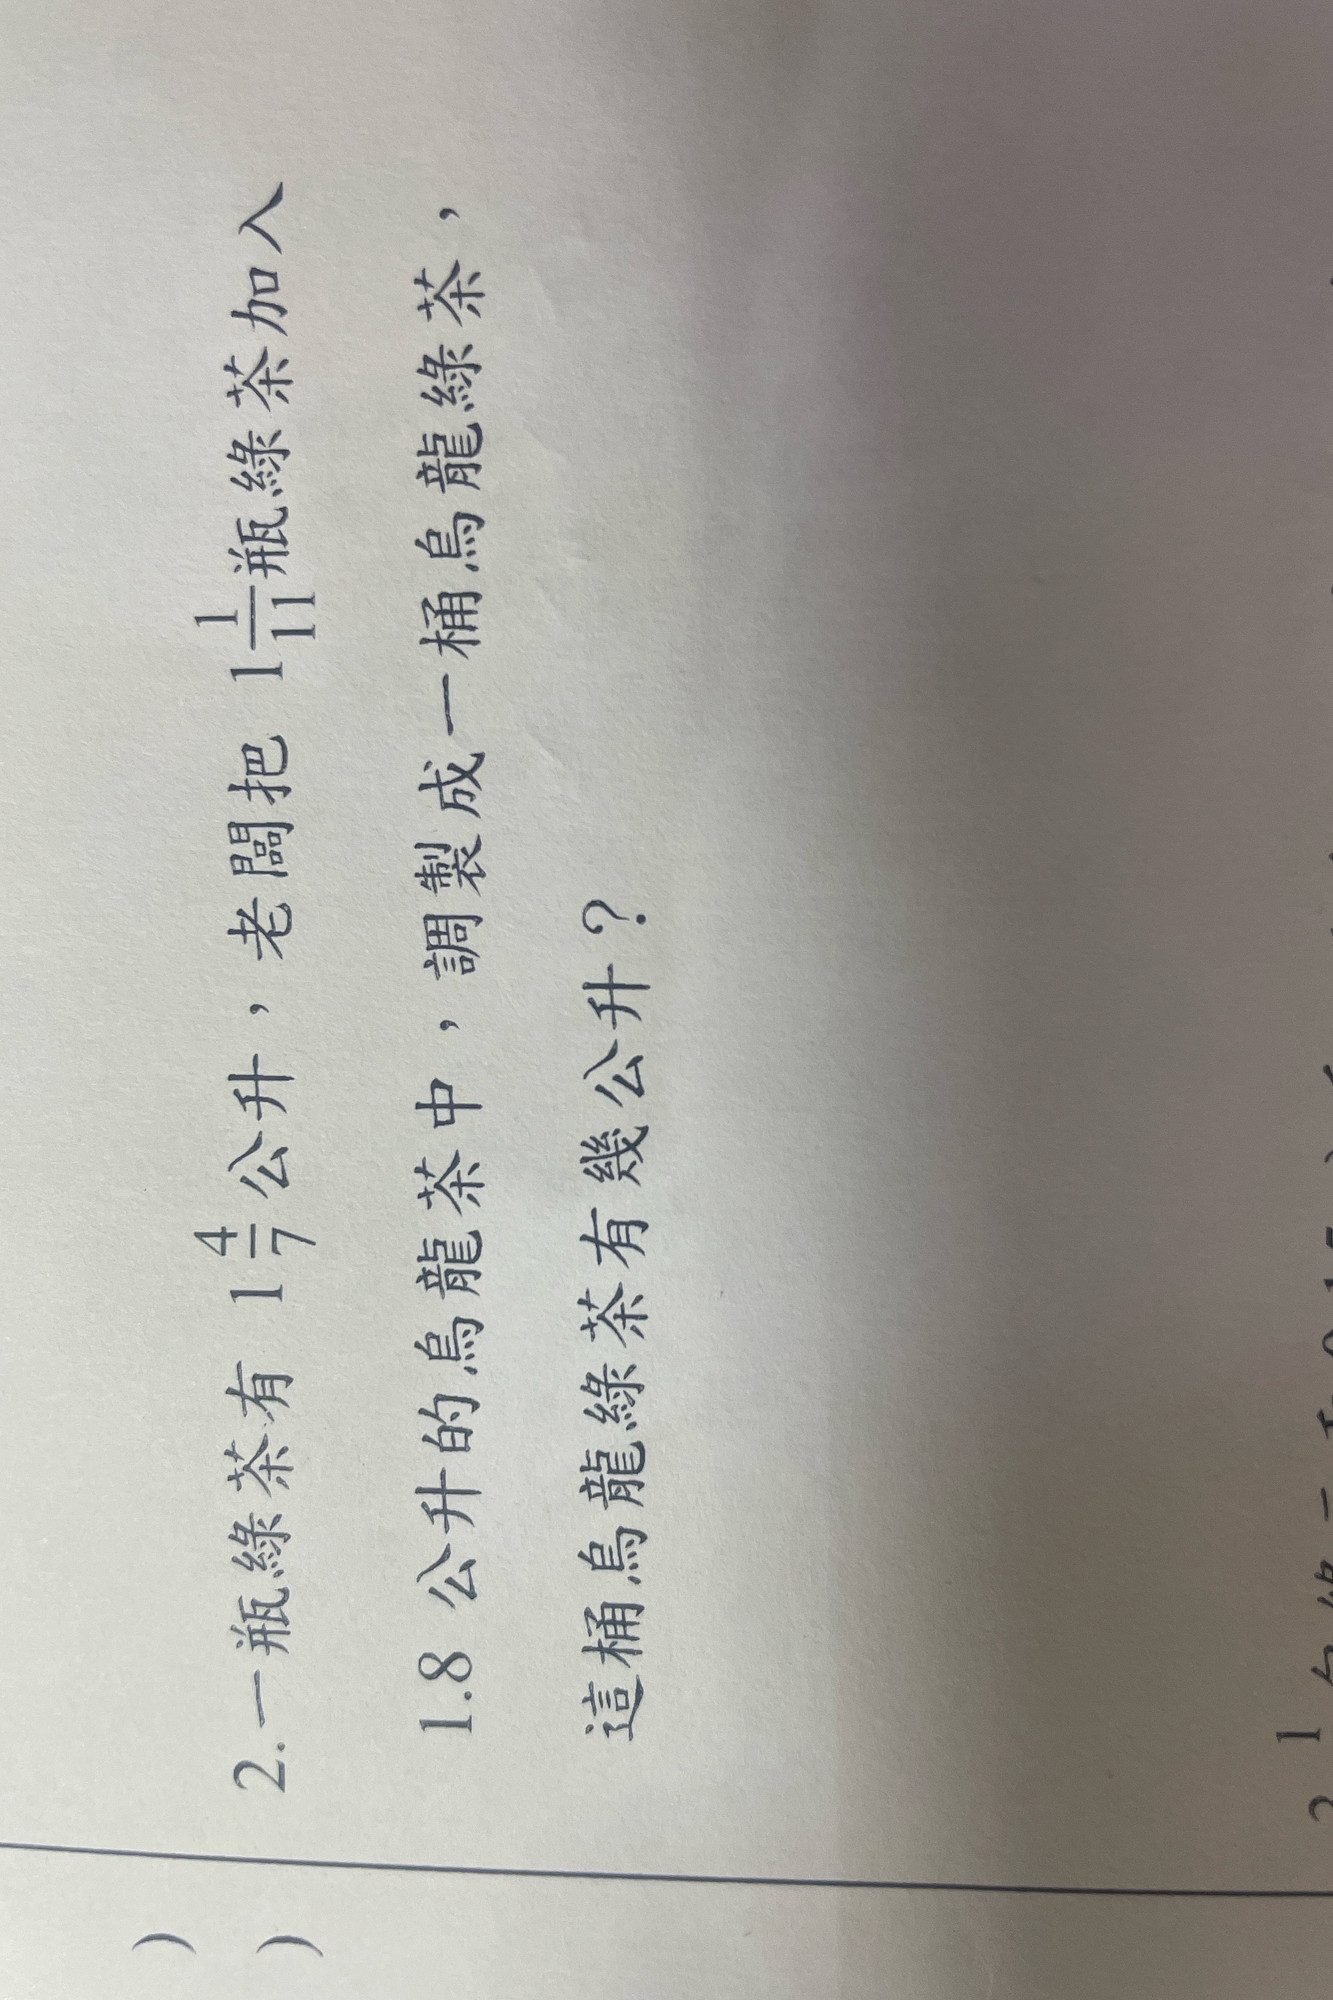 2. 一瓶綠茶有 1 4/7 公升，老闆把 1 1/11 瓶綠茶加入
1.8 公升的烏龍茶中，調製成一桶烏龍綠茶，
這桶烏龍綠茶有幾公升？
)
)